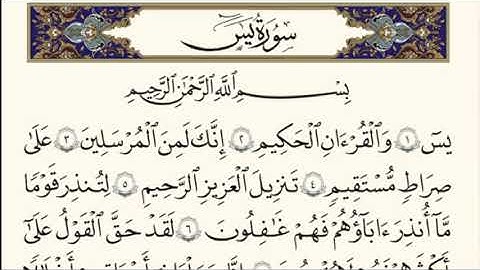 سُورَةُ يسٓ
بِسْمِ ٱللَّهِ ٱلرَّحْمَٰنِ ٱلرَّحِيمِ
يسٓ ١ وَٱلْقُرْءَانِ ٱلْحَكِيمِ ٢ إِنَّكَ لَمِنَ ٱلْمُرْسَلِينَ ٣ عَلَىٰ
صِرَٰطٍ مُّسْتَقِيمٍ ٤ تَنزِيلَ ٱلْعَزِيزِ ٱلرَّحِيمِ ٥ لِتُنذِرَ قَوْمًا
مَّآ أُنذِرَ ءَابَآؤُهُمْ فَهُمْ غَٰفِلُونَ ٦ لَقَدْ حَقَّ ٱلْقَوْلُ عَلَىٰٓ